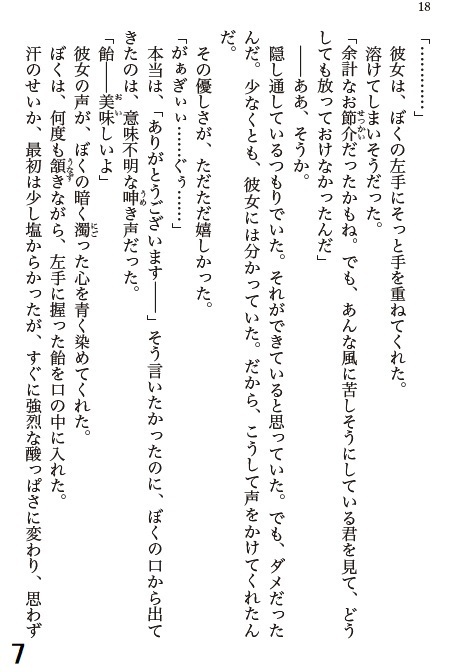 18
「…………」
彼女は、ぼくの左手にそっと手を重ねてくれた。
溶けてしまいそうだった。
「余計なお節介だったかもね。でも、あんな風に苦しそうにしている君を見て、どう
しても放っておけなかったんだ」
――ああ、そうか。
隠し通しているつもりでいた。それができていると思っていた。でも、ダメだった
んだ。少なくとも、彼女には分かっていた。だから、こうして声をかけてくれたん
だ。
その優しさが、ただただ嬉しかった。
「がぁぎぃぃ……ぐぅ……」
本当は、「ありがとうございます――」そう言いたかったのに、ぼくの口から出て
きたのは、意味不明な呻き声だった。
「飴――美味しいよ」
彼女の声が、ぼくの暗く濁った心を青く染めてくれた。
ぼくは、何度も頷きながら、左手に握った飴を口の中に入れた。
汗のせいか、最初は少し塩からかったが、すぐに強烈な酸っぱさに変わり、思わず
7